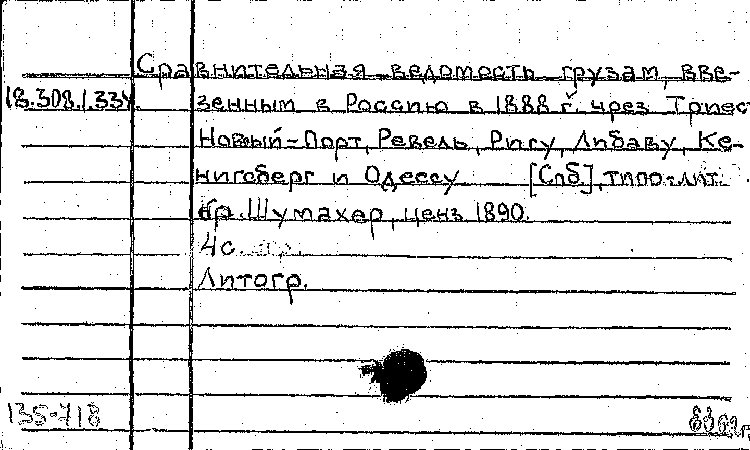 Сравнительная ведомость грузам, вве-
18.308.1.334.
зенным в Россию в 1888 г. чрез Триест
Новый-Порт, Ревель, Ригу, Либаву, Ке-
нигсберг и Одессу [Спб], типо-лит.
бр. Шумахер, ценз 1890.
4с.
Литогр.
135-718